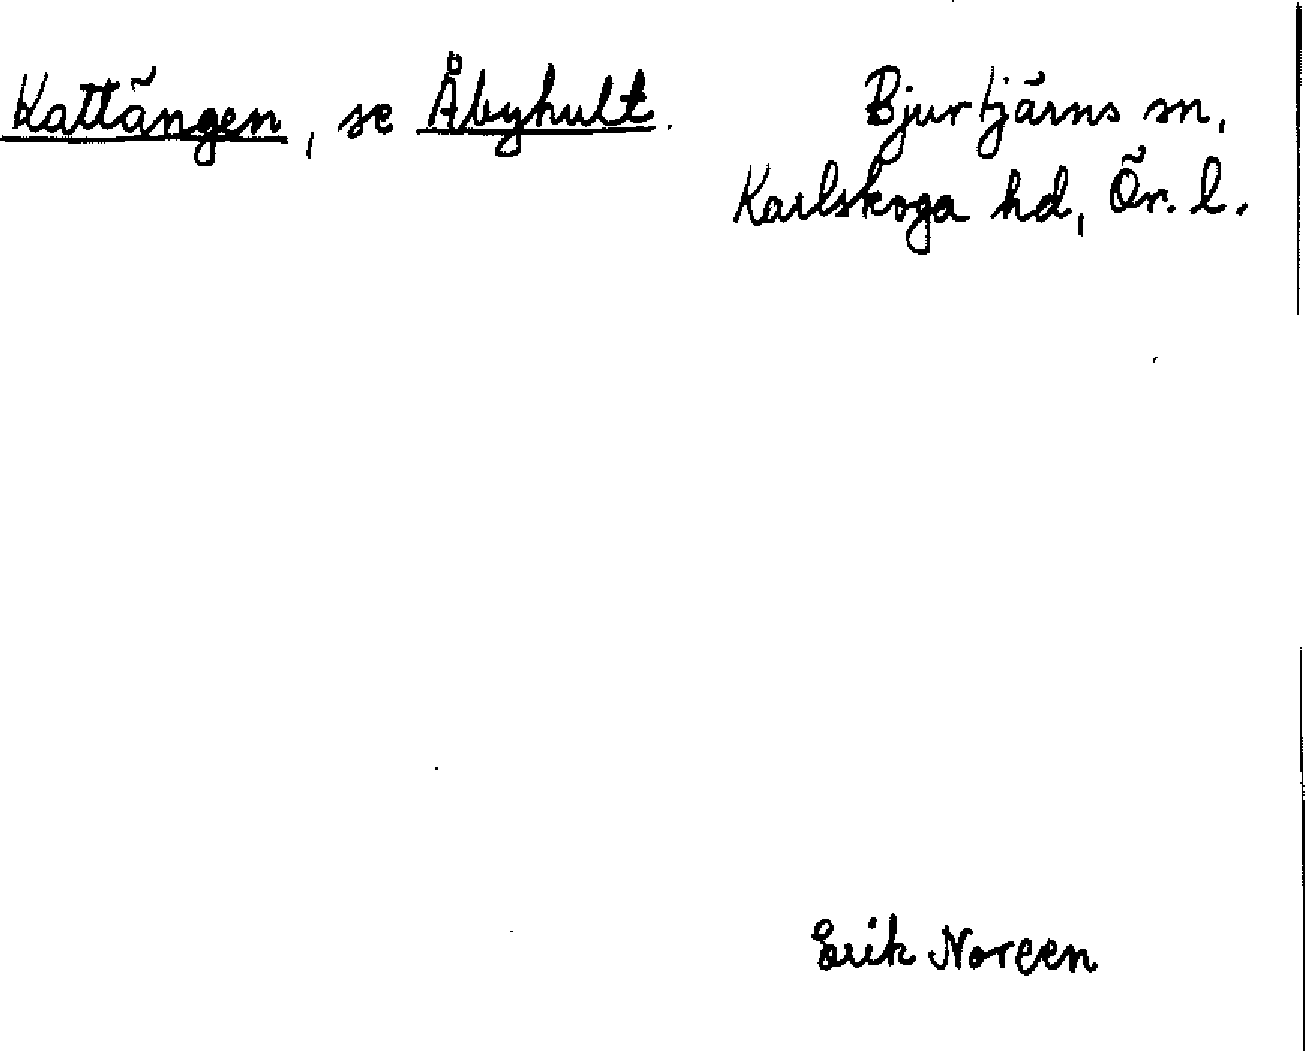 Kattängen, se Åbyhult.
Bjurtjärns sn,
Karlskoga hd, Ör. l.
Erik Noreen